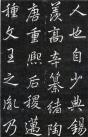 人也自少典錫
羨高辛纂緒陶
唐重熙后稷邁
種文王之胤乃